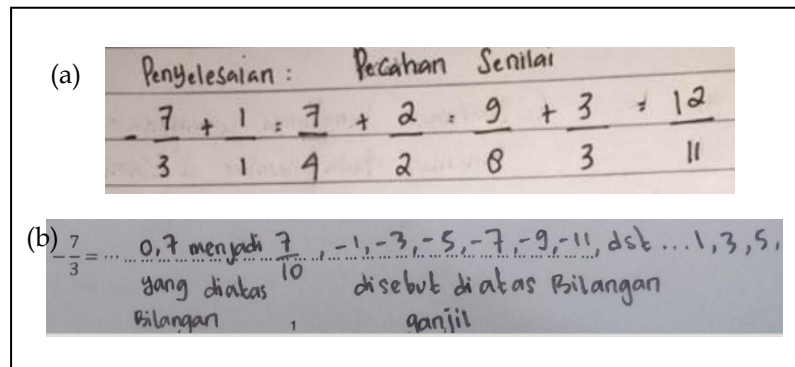 (a)
Penyelesaian : Pecahan Senilai
- 7/3 + 1/1 = 7/4 + 2/2 = 9/8 + 3/3 = 12/11
(b)
-7/3 = ... 0,7 menjadi 7/10, -1, -3, -5, -7, -9, -11, dst ... 1, 3, 5,
yang diatas disebut diatas Bilangan
Bilangan ganjil